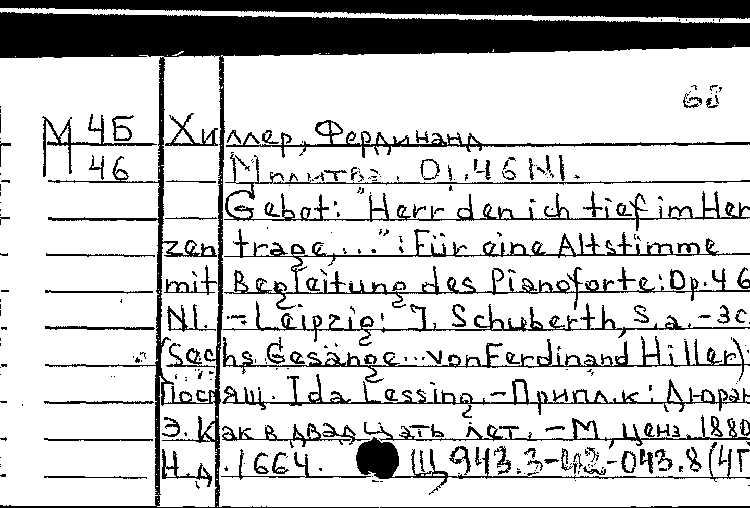 68
М 4Б Хиллер, Фердинанд
46 Молитва. Op.46 N1.
Gebet: "Herr den ich tief im Her
zen trage,..." : Für eine Altstimme
mit Begleitung des Pianoforte: Op.46
N1. - Leipzig: J. Schuberth, s.a. - 3с
(Sechs Gesänge... von Ferdinand Hiller)
Посвящ. Ida Lessing. - Припл.к: Дюран
Э. Как в двадцать лет. - М, ценз. 1880
Н.д. 1664. Щ 943.3-42-043.8(4Г